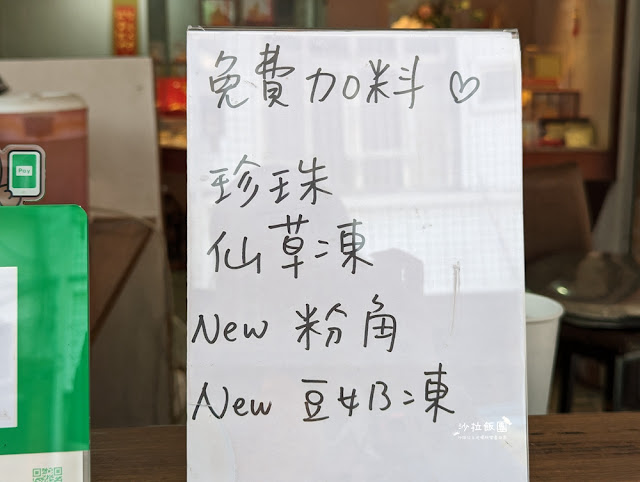 免費加料♡
珍珠
仙草凍
New 粉角
New 豆奶凍
Pay
沙拉飯團